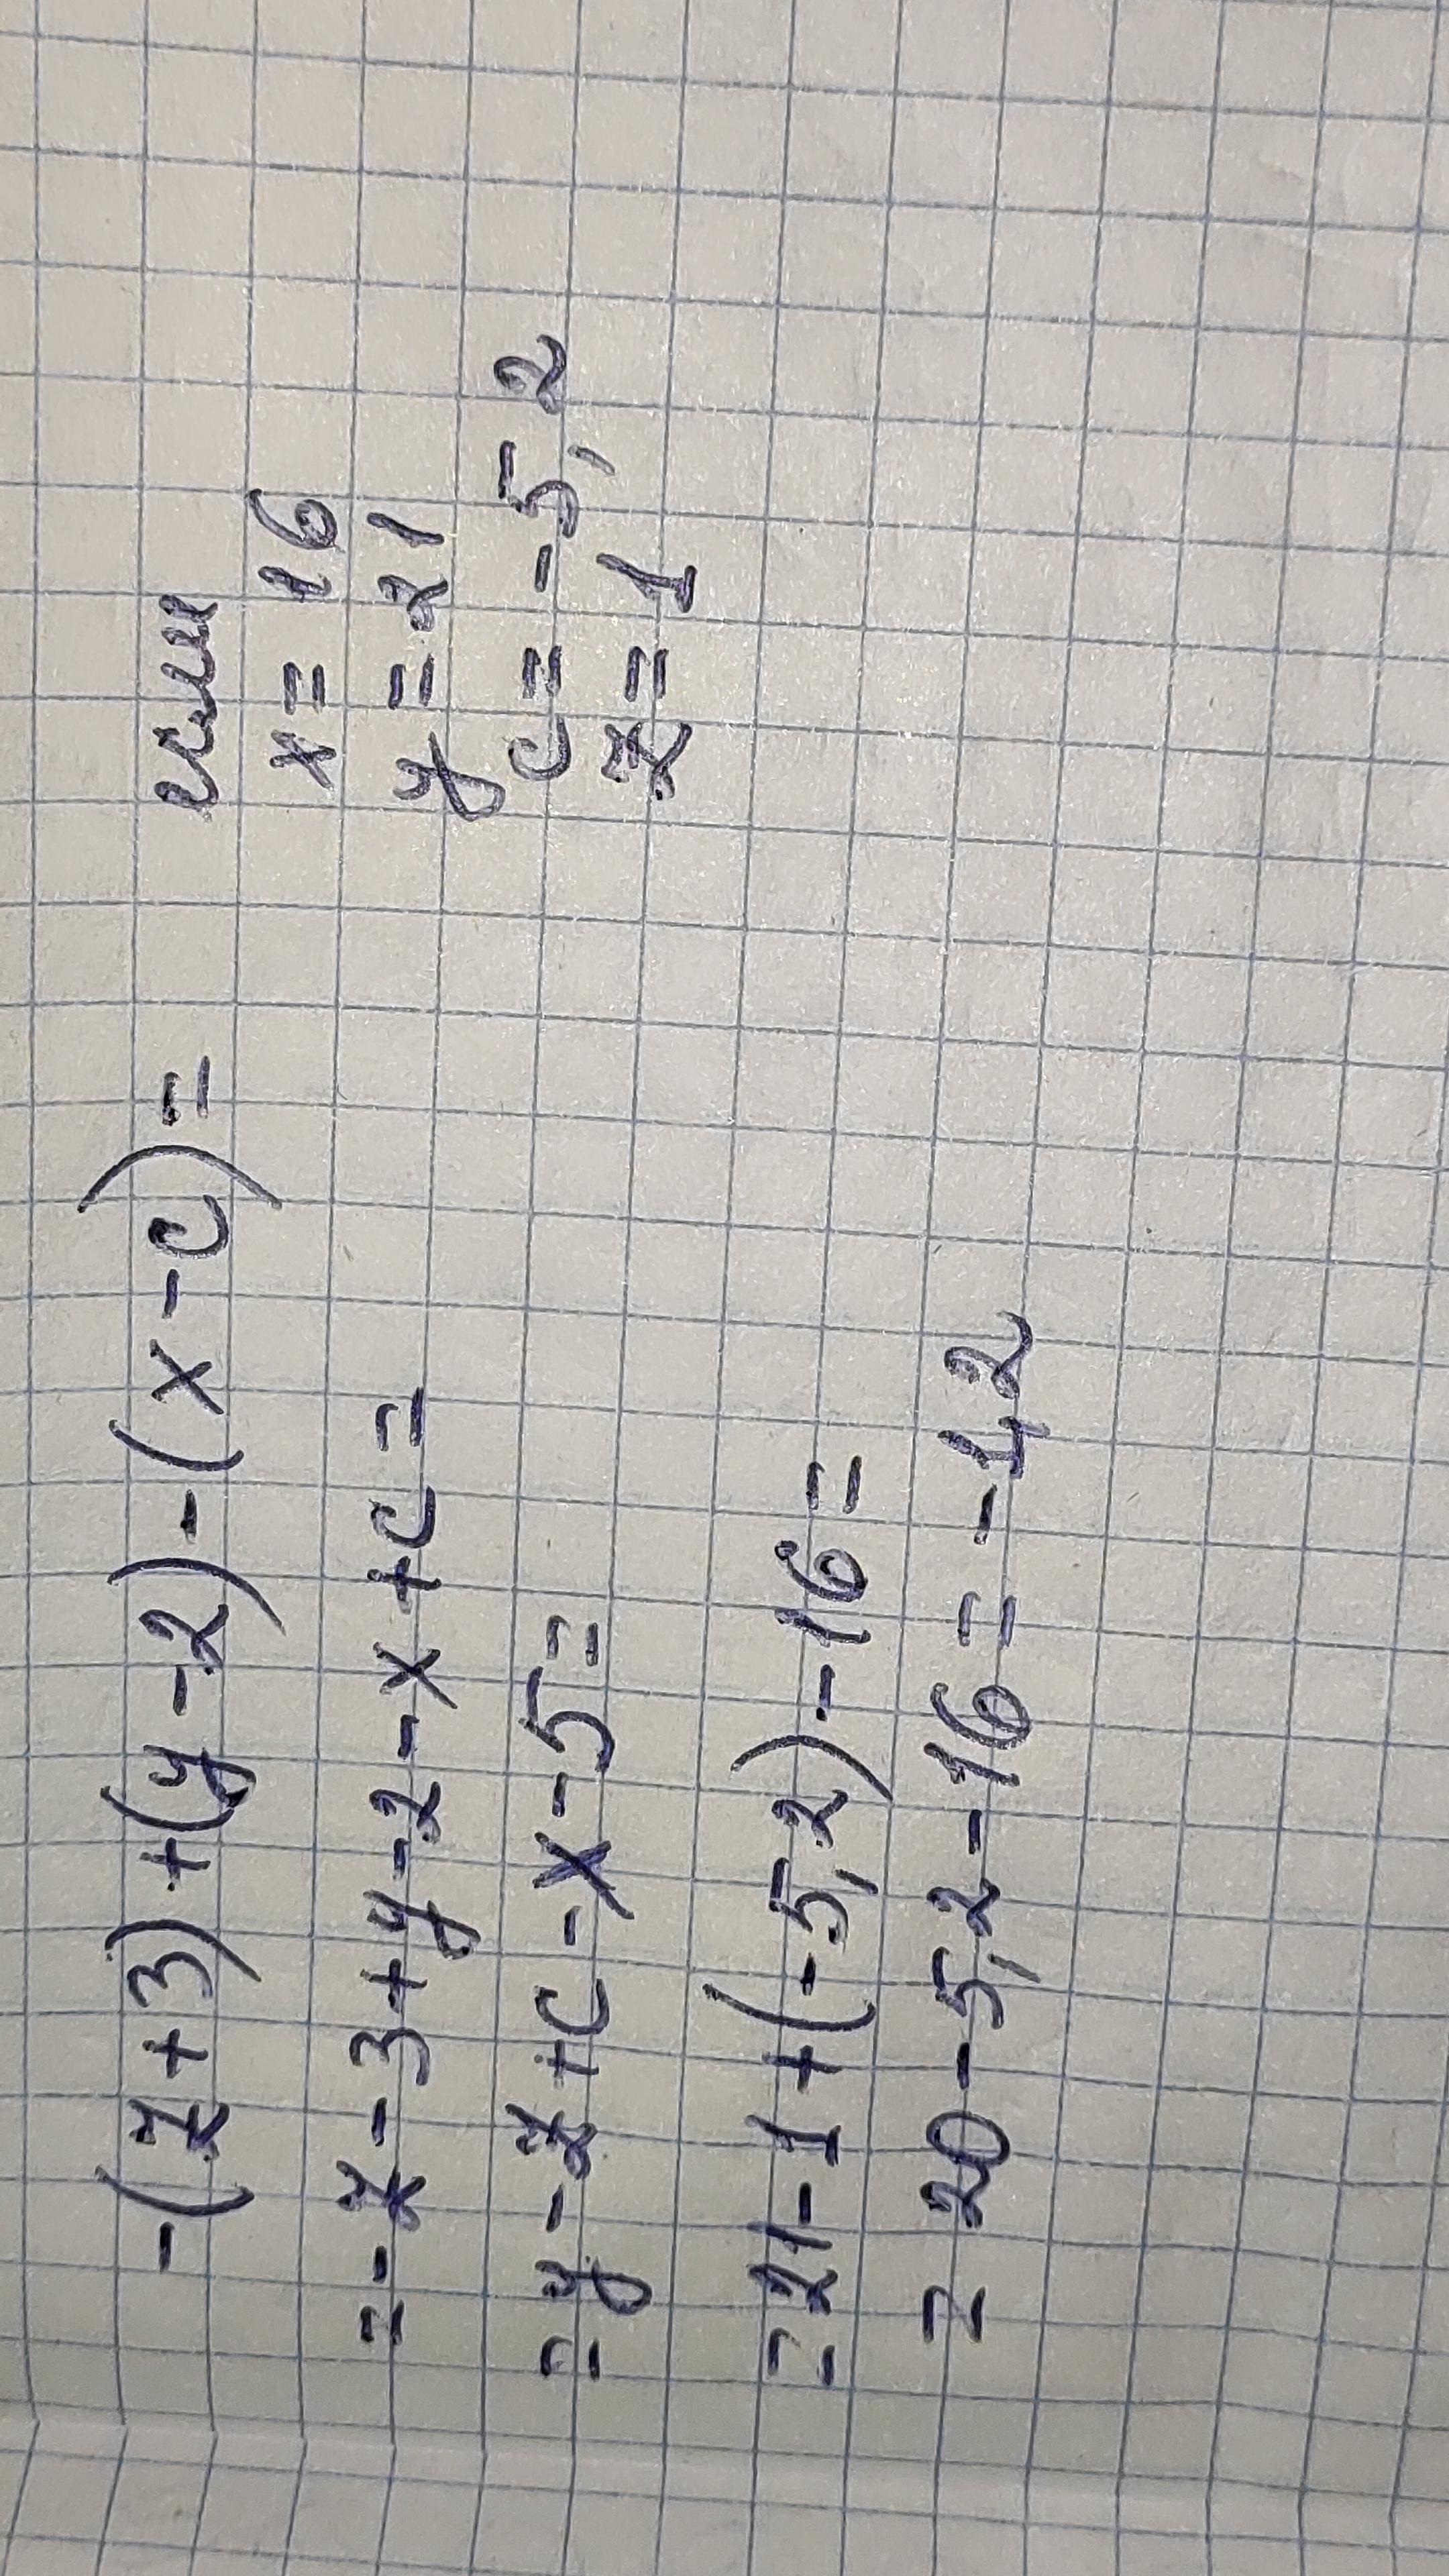 -(z+3)+(y-2)-(x-c)=
=-z-3+y-2-x+c=
=y-z+c-x-5=
=21-1+(-5,2)-16=
= 20-5,2-16= -1,2
если
x= 16
y=21
c= -5,2
z= 1